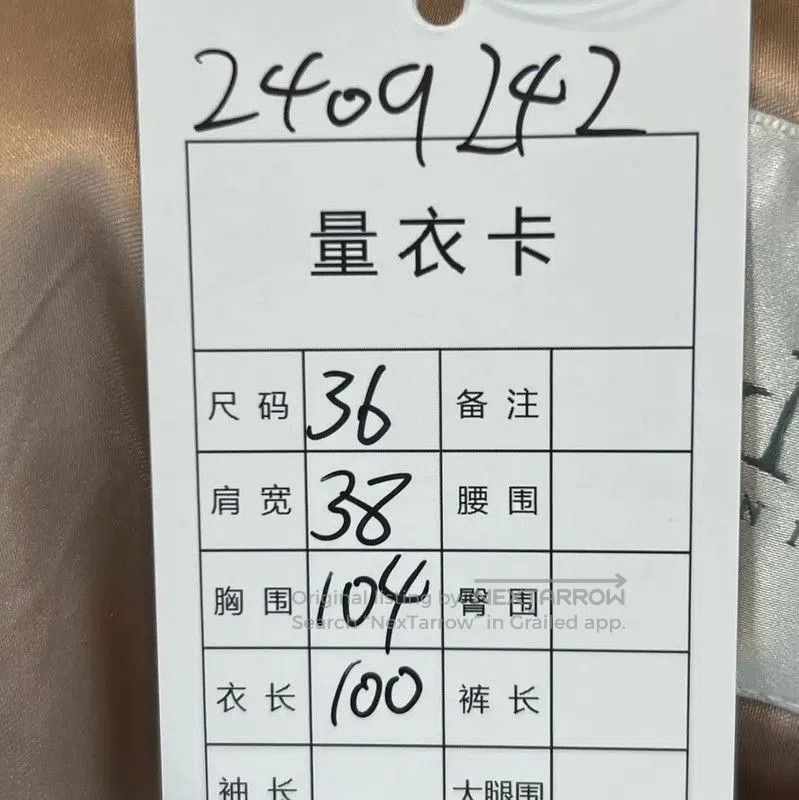 2409242
量衣卡
尺码 36 备注
肩宽 38 腰围
胸围 104 臀围
Original listing by NEXTARROW
Search "NexTarrow" in Grailed app.
衣长 100 裤长
袖长 大腿围